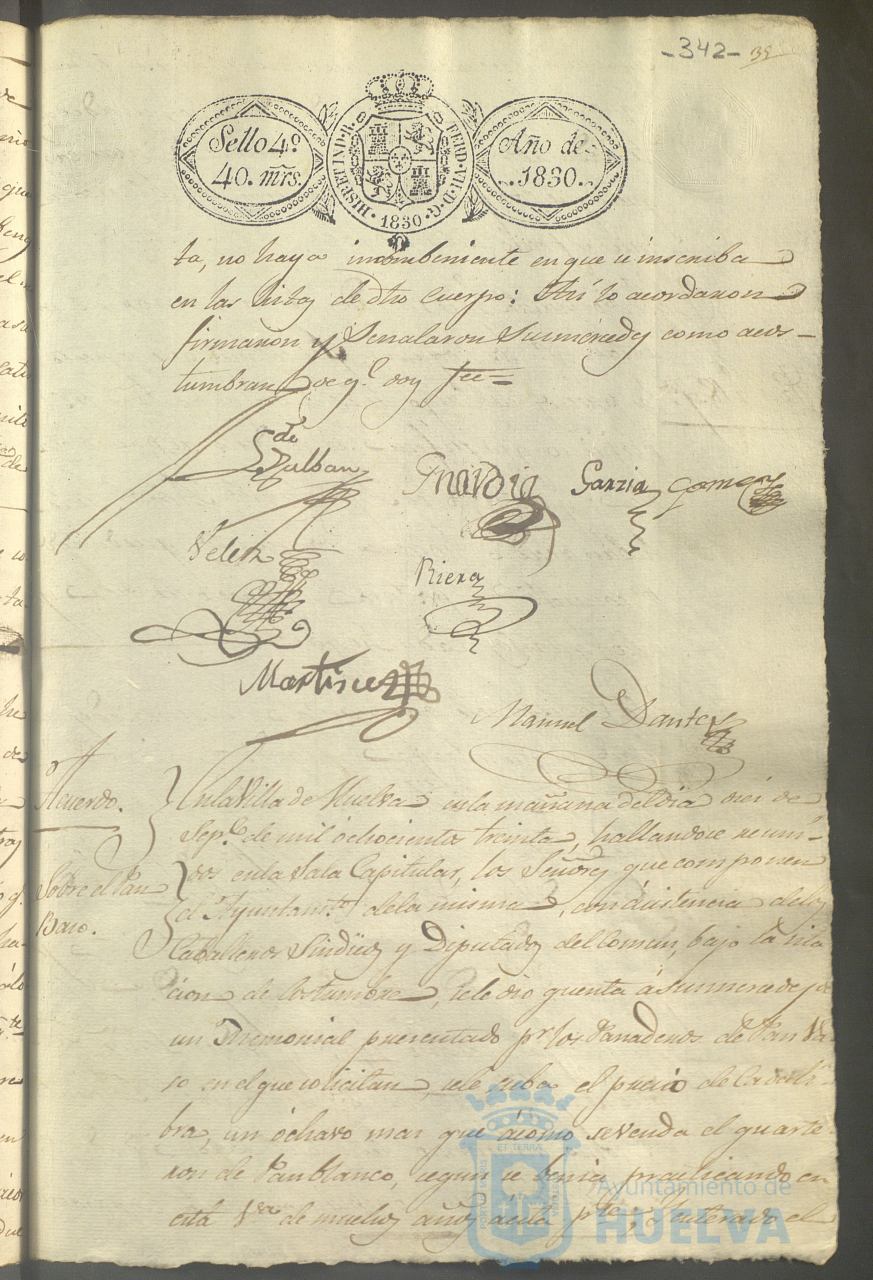 -342- 39
Sello 4º
40. mrs.
HISP. ET IND. R. FERD. VII. D. G. 1830
Año de
1830.
ta, no haya incombeniente en que se inscriba
en las listas de dho cuerpo: Asi lo acordaron
firmaron y señalaron sus mercedes como acos-
tumbran de qe. doy fee=
de Zulban
Guardia Garzia Gomez
Velez
Riera
Martinez
Manuel Dantes
Acuerdo.
En la Villa de Huelva en la mañana del dia diez de
Sepe. de mil ochociento treinta, hallandose reuni-
Sobre el Pan
Bazo.
dos en la Sala Capitular, los Señores que componen
el Ayuntamto. de la misma, con asistencia de los
Caballeros Sindicos y Diputados del Comun, bajo la cita
cion de costumbre, se le dio quenta á sus mercedes de
un Memorial presentado pr. los Panaderos de Pan Ba
zo en el que solicitan, se le suba el precio de cada li-
bra, un óchavo mas que ácomo se venda el quarte
ron de Pan blanco, segun se benia practicando en
esta Va. de muchos años á esta pte. y enterado el
Ayuntamiento de
HUELVA